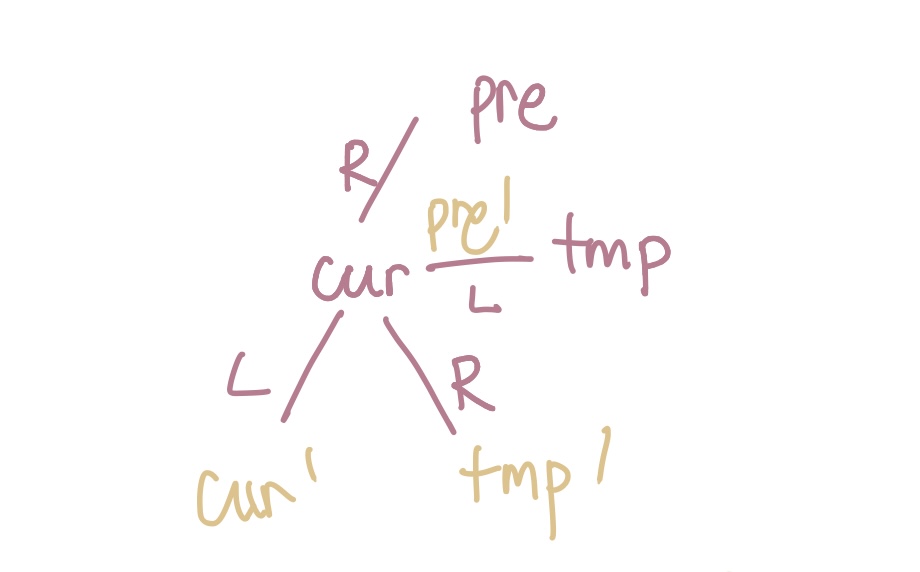 pre
R
pre'
cur
tmp
L
L
R
cur'
tmp'